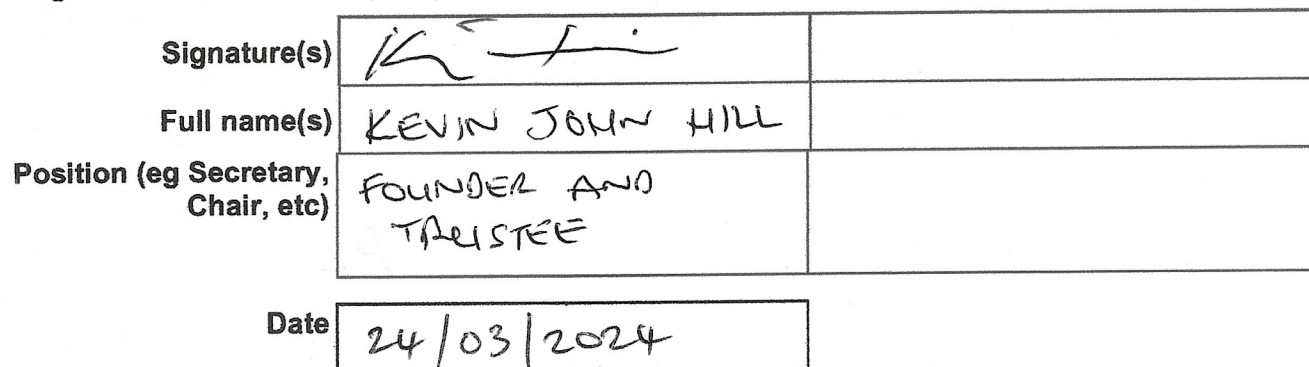 Signature(s)
Full name(s) KEVIN JOHN HILL
Position (eg Secretary, FOUNDER AND
Chair, etc) TRUSTEE
Date 24/03/2024